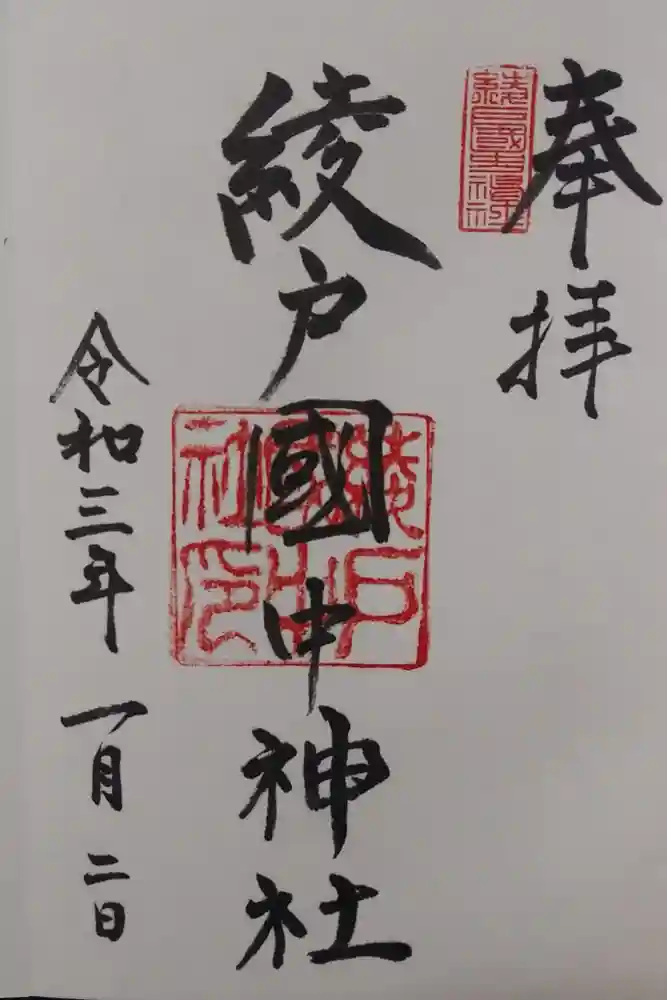 奉拝
綾戸國中神社
綾戸
國中
社印
令和三年 一月二日